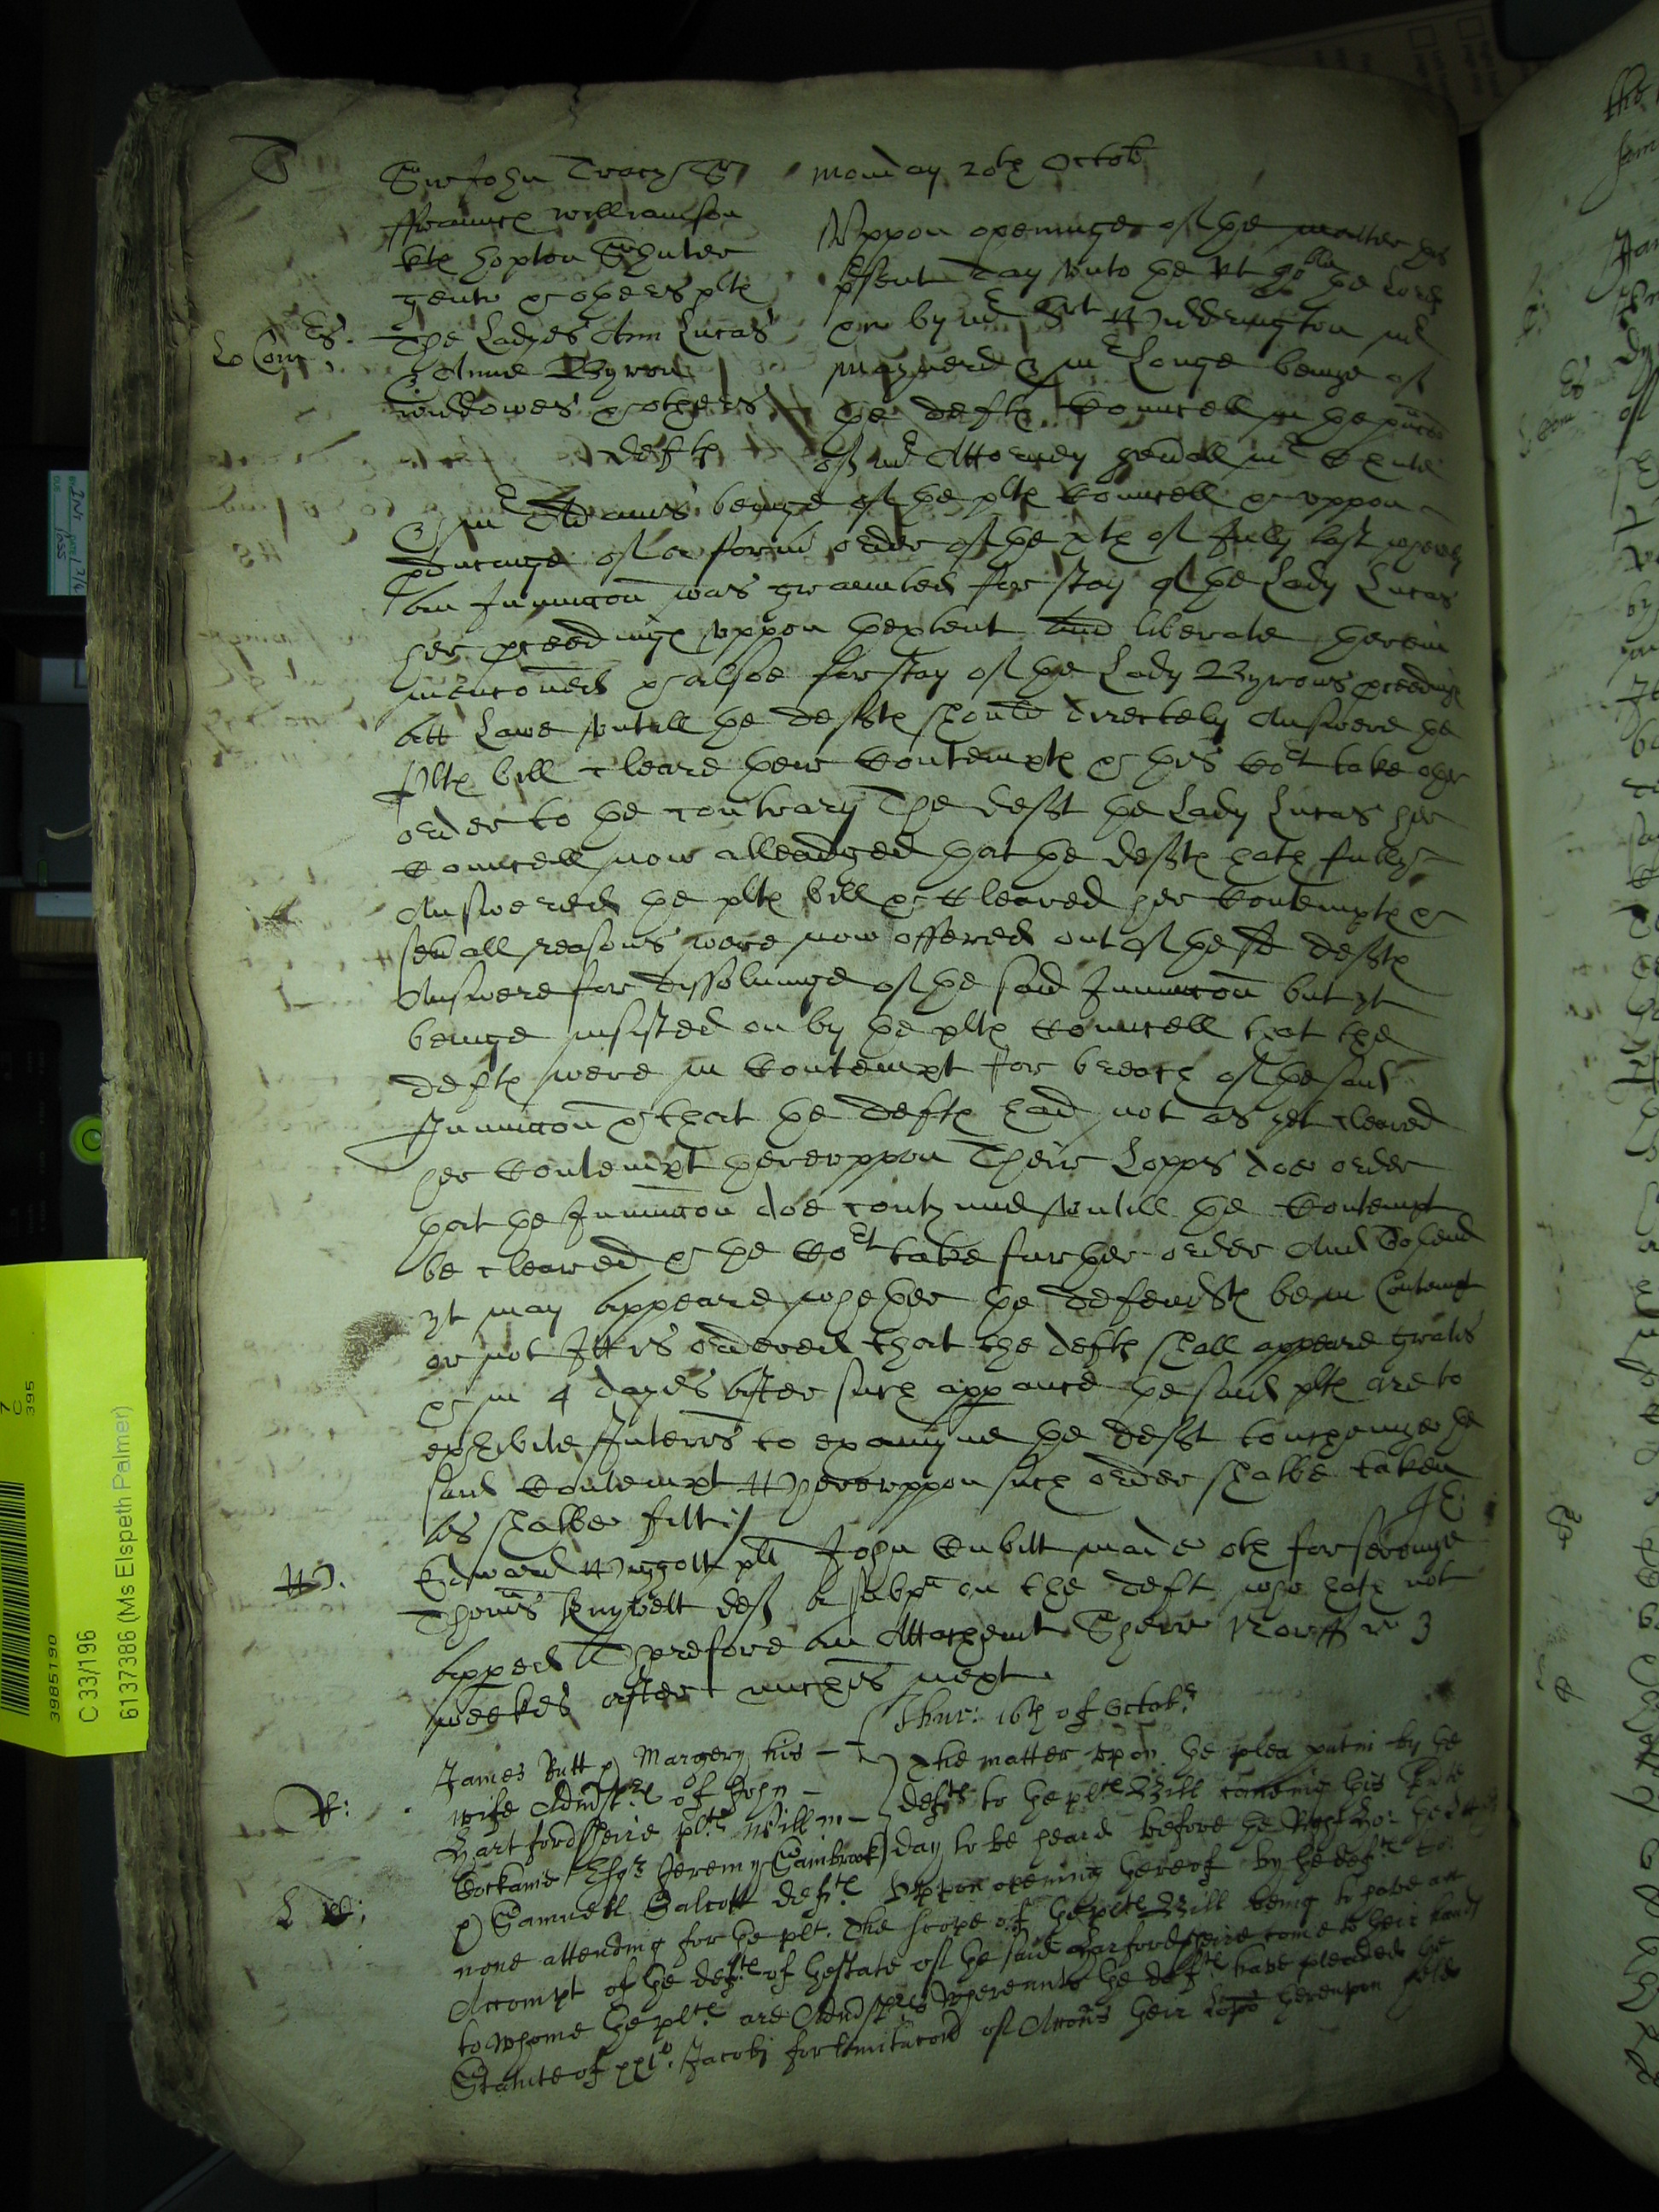 T
Sir John Tracy Kt
ffrauncis Williamson
Hopton Shuter
gent & others plts
The Ladyes Ann Lucas
& Anne Byron
widdowes & others
defts
Lo Com
Monday 20th Octob
Vppon openinge of the matter this
psent day vnto the Rt hoble the Lords
by mr Srt Widdrington mr
Maynerd & mr Longe beinge of
the defts Councell in the psence
of mr Attorney genall mr
& mr Adams beinge of the plts Councell & vppon
pducinge of a formr order of the xth of July last whereby
an Iniunccon was graunted for stay of the Lady Lucas
her pceedings vppon thextent And liberate therein
menconed & alsoe for stay of the Lady Byrons pceedings
att Lawe vntill the defts should directely Answere the
Plts bill cleare their Contempts & this Cort take other
order to the contrary The deft the Lady Lucas her
Councell now alleadged that the defts hath fully
Answered the plts bill & Cleared her Contempts &
seuall reasons were now offered out of the sd defts
Answere for dissoluinge of the said Iniunccon but yt
beinge insisted on by the plts Councell that the
defts were in Contempt for breach of the said
Iniunccon & that the defts had not as yet cleared
her Contempt therevppon Their Lopps doe order
that the Iniunccon doe contynue vntill the Contempt
be cleared & the Cort take further order And Tothend
yt may appeare whether the defendts be in Contempt
or not Itt is ordered that the defts shall appeare gratis
& in 4 dayes after such appance the said plts are to
exhibite Interrs to examyne the deft touchinge the
said Contempt Wherevppon such order shalbe taken
as shalbe fitt
W.
Edward Wiggott plt
Thomas Knyvett deft
John Cubitt made oth for serveinge
a subpa on the deft who hath not
apped Therefore an Attachemt Sherr Norff re 3
weekes after michis next
Thur: 16th of Octobr
R:
L
James Butt & Margery his
wife Admstrs of John
Hartfordsheire plts Willm
Cockaine Esqr Jeremy Sambrook
& Samuell Salcott defts
The matter vpon the plea put in by the
defts to the plts Bill coming this psente
day to be heard before the Right ho:
Vppon opening thereof by the defts Co:
none attending for the plt. The scope of the plts Bill being to have an
Accompt of the defts of thestate of the said Harfordsheire come to their hands
to whome the plts are Admstrs Wherevnto the defts have pleaded the
Statute of xxio Jacobj for limitacon of Accons their Lopps therevpon
3985190
C 33/196
6137386 (Ms Elspeth Palmer)
7
C
395